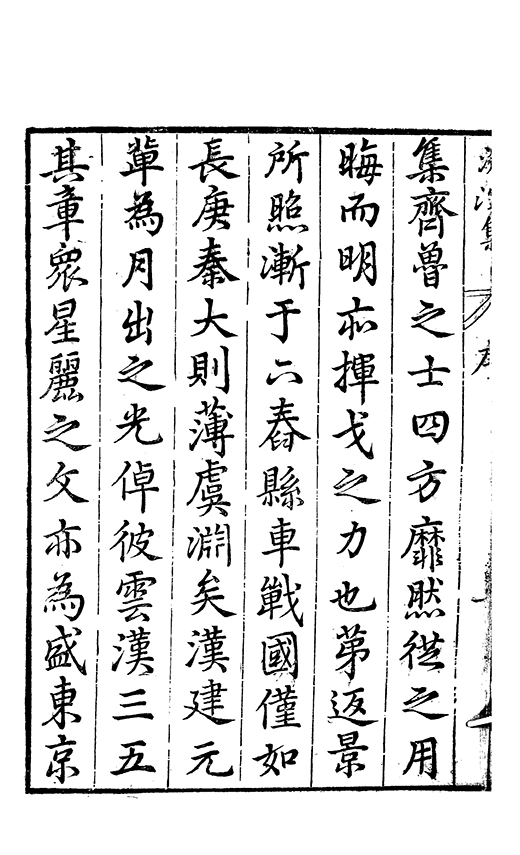 集齊魯之士四方靡然從之用
晦而明亦揮戈之力也苐返景
所照漸于六舂縣車戰國僅如
長庚秦大則薄虞淵矣漢建元
輩為月出之光倬彼雲漢三五
其章衆星麗之文亦為盛東京